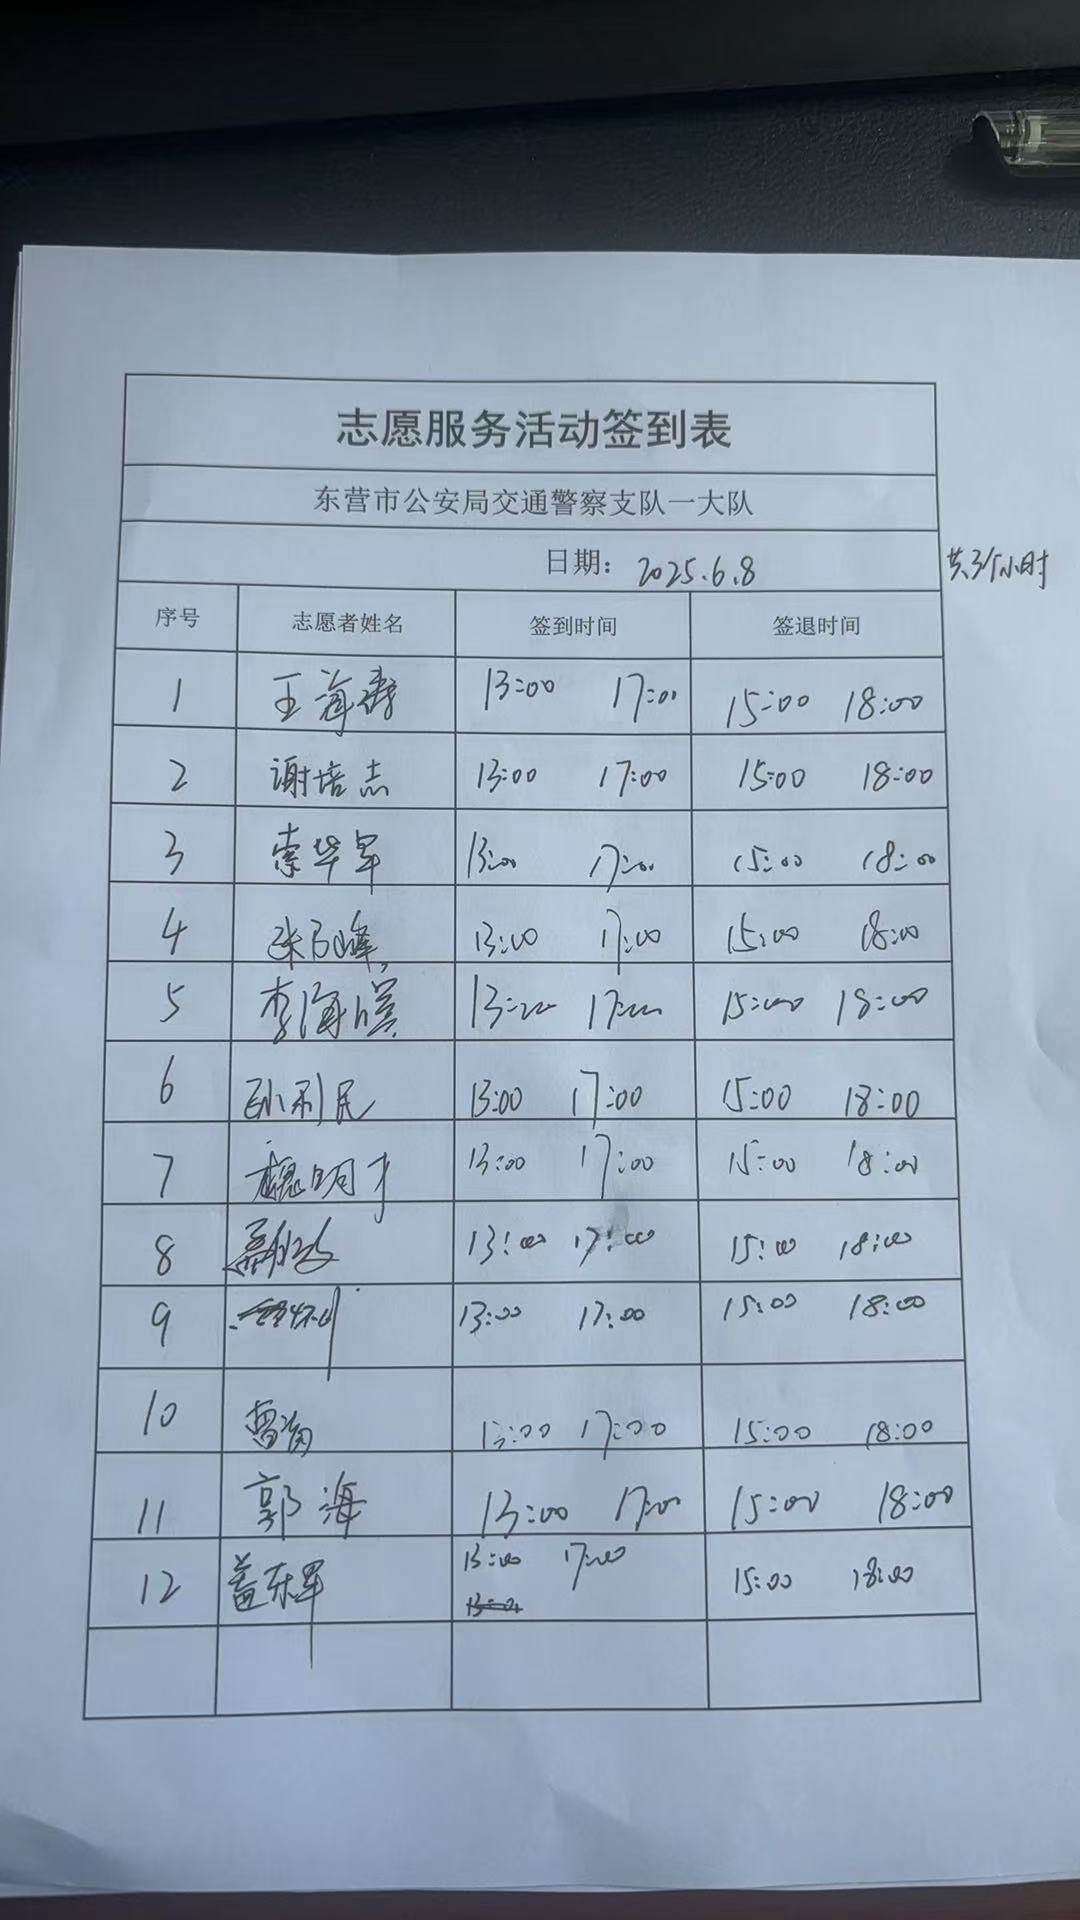 志愿服务活动签到表
东营市公安局交通警察支队一大队
日期: 2025.6.8 共3个小时
序号 志愿者姓名 签到时间 签退时间
1 王海涛 13:00 17:00 15:00 18:00
2 谢培志 13:00 17:00 15:00 18:00
3 索华军 13:00 17:00 15:00 18:00
4 13:00 17:00 15:00 18:00
5 李海滨 13:00 17:00 15:00 18:00
6 孙利民 13:00 17:00 15:00 18:00
7 魏明才 13:00 17:00 15:00 18:00
8 13:00 17:00 15:00 18:00
9 13:00 17:00 15:00 18:00
10 13:00 17:00 15:00 18:00
11 郭海 13:00 17:00 15:00 18:00
12 盖东军 13:00 17:00 15:00 18:00